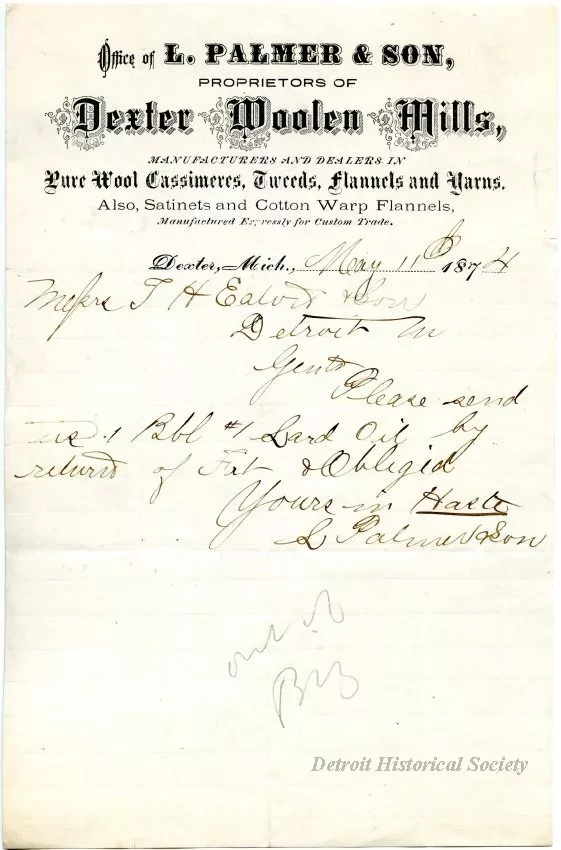 Office of L. PALMER & SON,
PROPRIETORS OF
Dexter Woolen Mills,
MANUFACTURERS AND DEALERS IN
Pure Wool Cassimeres, Tweeds, Flannels and Yarns.
Also, Satinets and Cotton Warp Flannels,
Manufactured Expressly for Custom Trade.
Dexter, Mich., May 11th 1874
Messrs T H & Son
Detroit M
Gents
Please send
us 1 Bbl #1 Lard Oil by
return of Frt & Obligid
Yours in Haste
L Palmer & Son
Detroit Historical Society